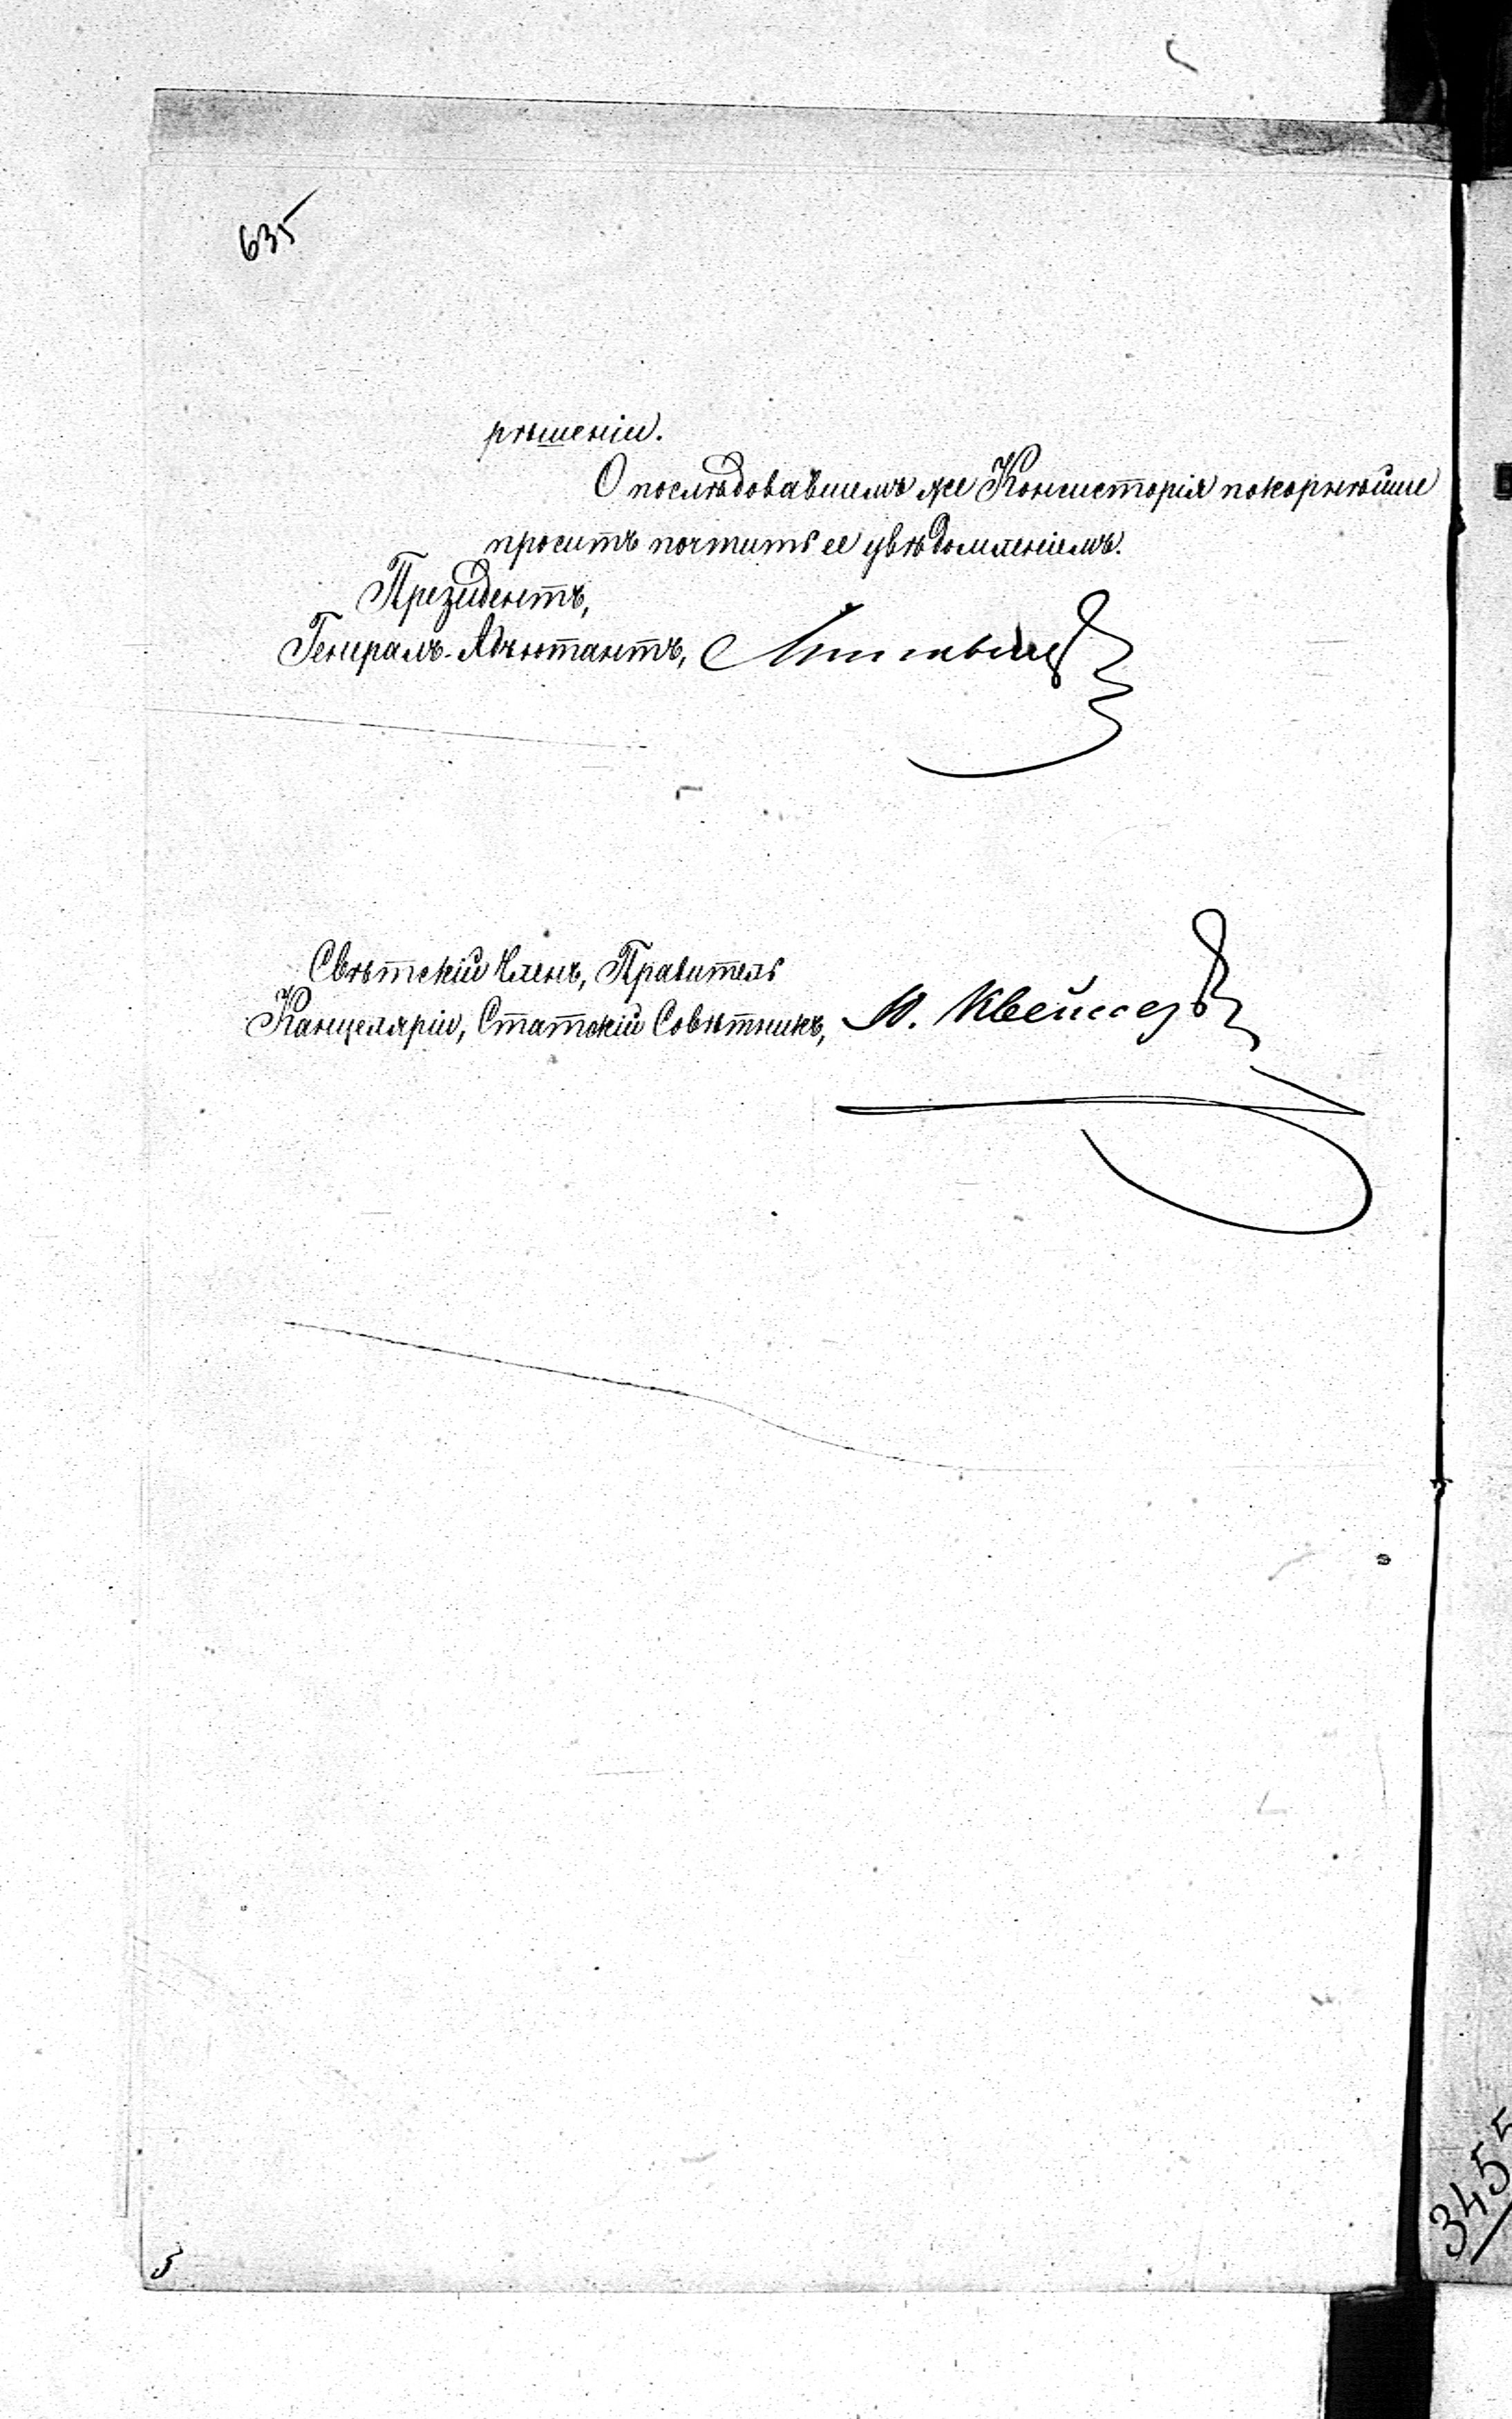 635
рѣшеніи.
О послѣдовавшемъ же Консисторія покорнѣйше
проситъ почтить ее увѣдомленіемъ.
Президентъ,
Генералъ-Адъютантъ,
Свѣтскій Членъ, Правитель
Канцеляріи, Статскій Совѣтникъ,
5
3455